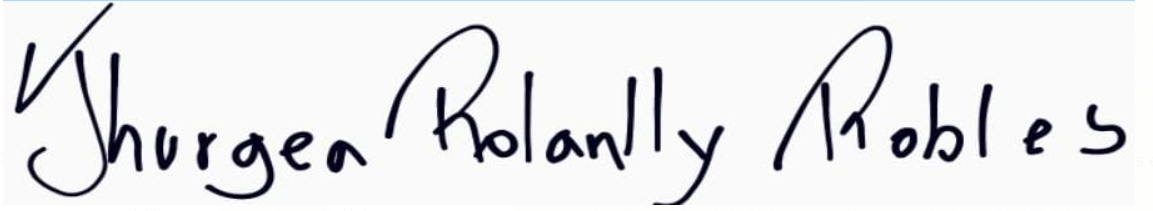 Jhurgen Rolanlly Robles